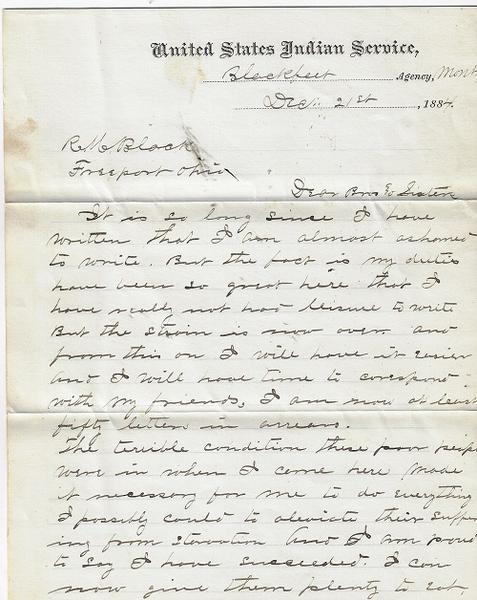 United States Indian Service,
Blackfeet Agency, Mont
Dec. 21st, 1884.
R. M. Black
Freeport Ohio
Dear Bro & Sister
It is so long since I have
written that I am almost ashamed
to write. But the fact is my duties
have been so great here that I
have really not had leisure to write
But the strain is now over and
from this on I will have it easier
And I will have time to corespond
with my friends, I am now at least
fifty letters in arrears.
The terrible condition these poor peopl
were in when I came here made
it necessary for me to do everything
I possibly could to aleviate their suffer
ing from starvation And I am proud
to say I have succeeded. I can
now give them plenty to eat,